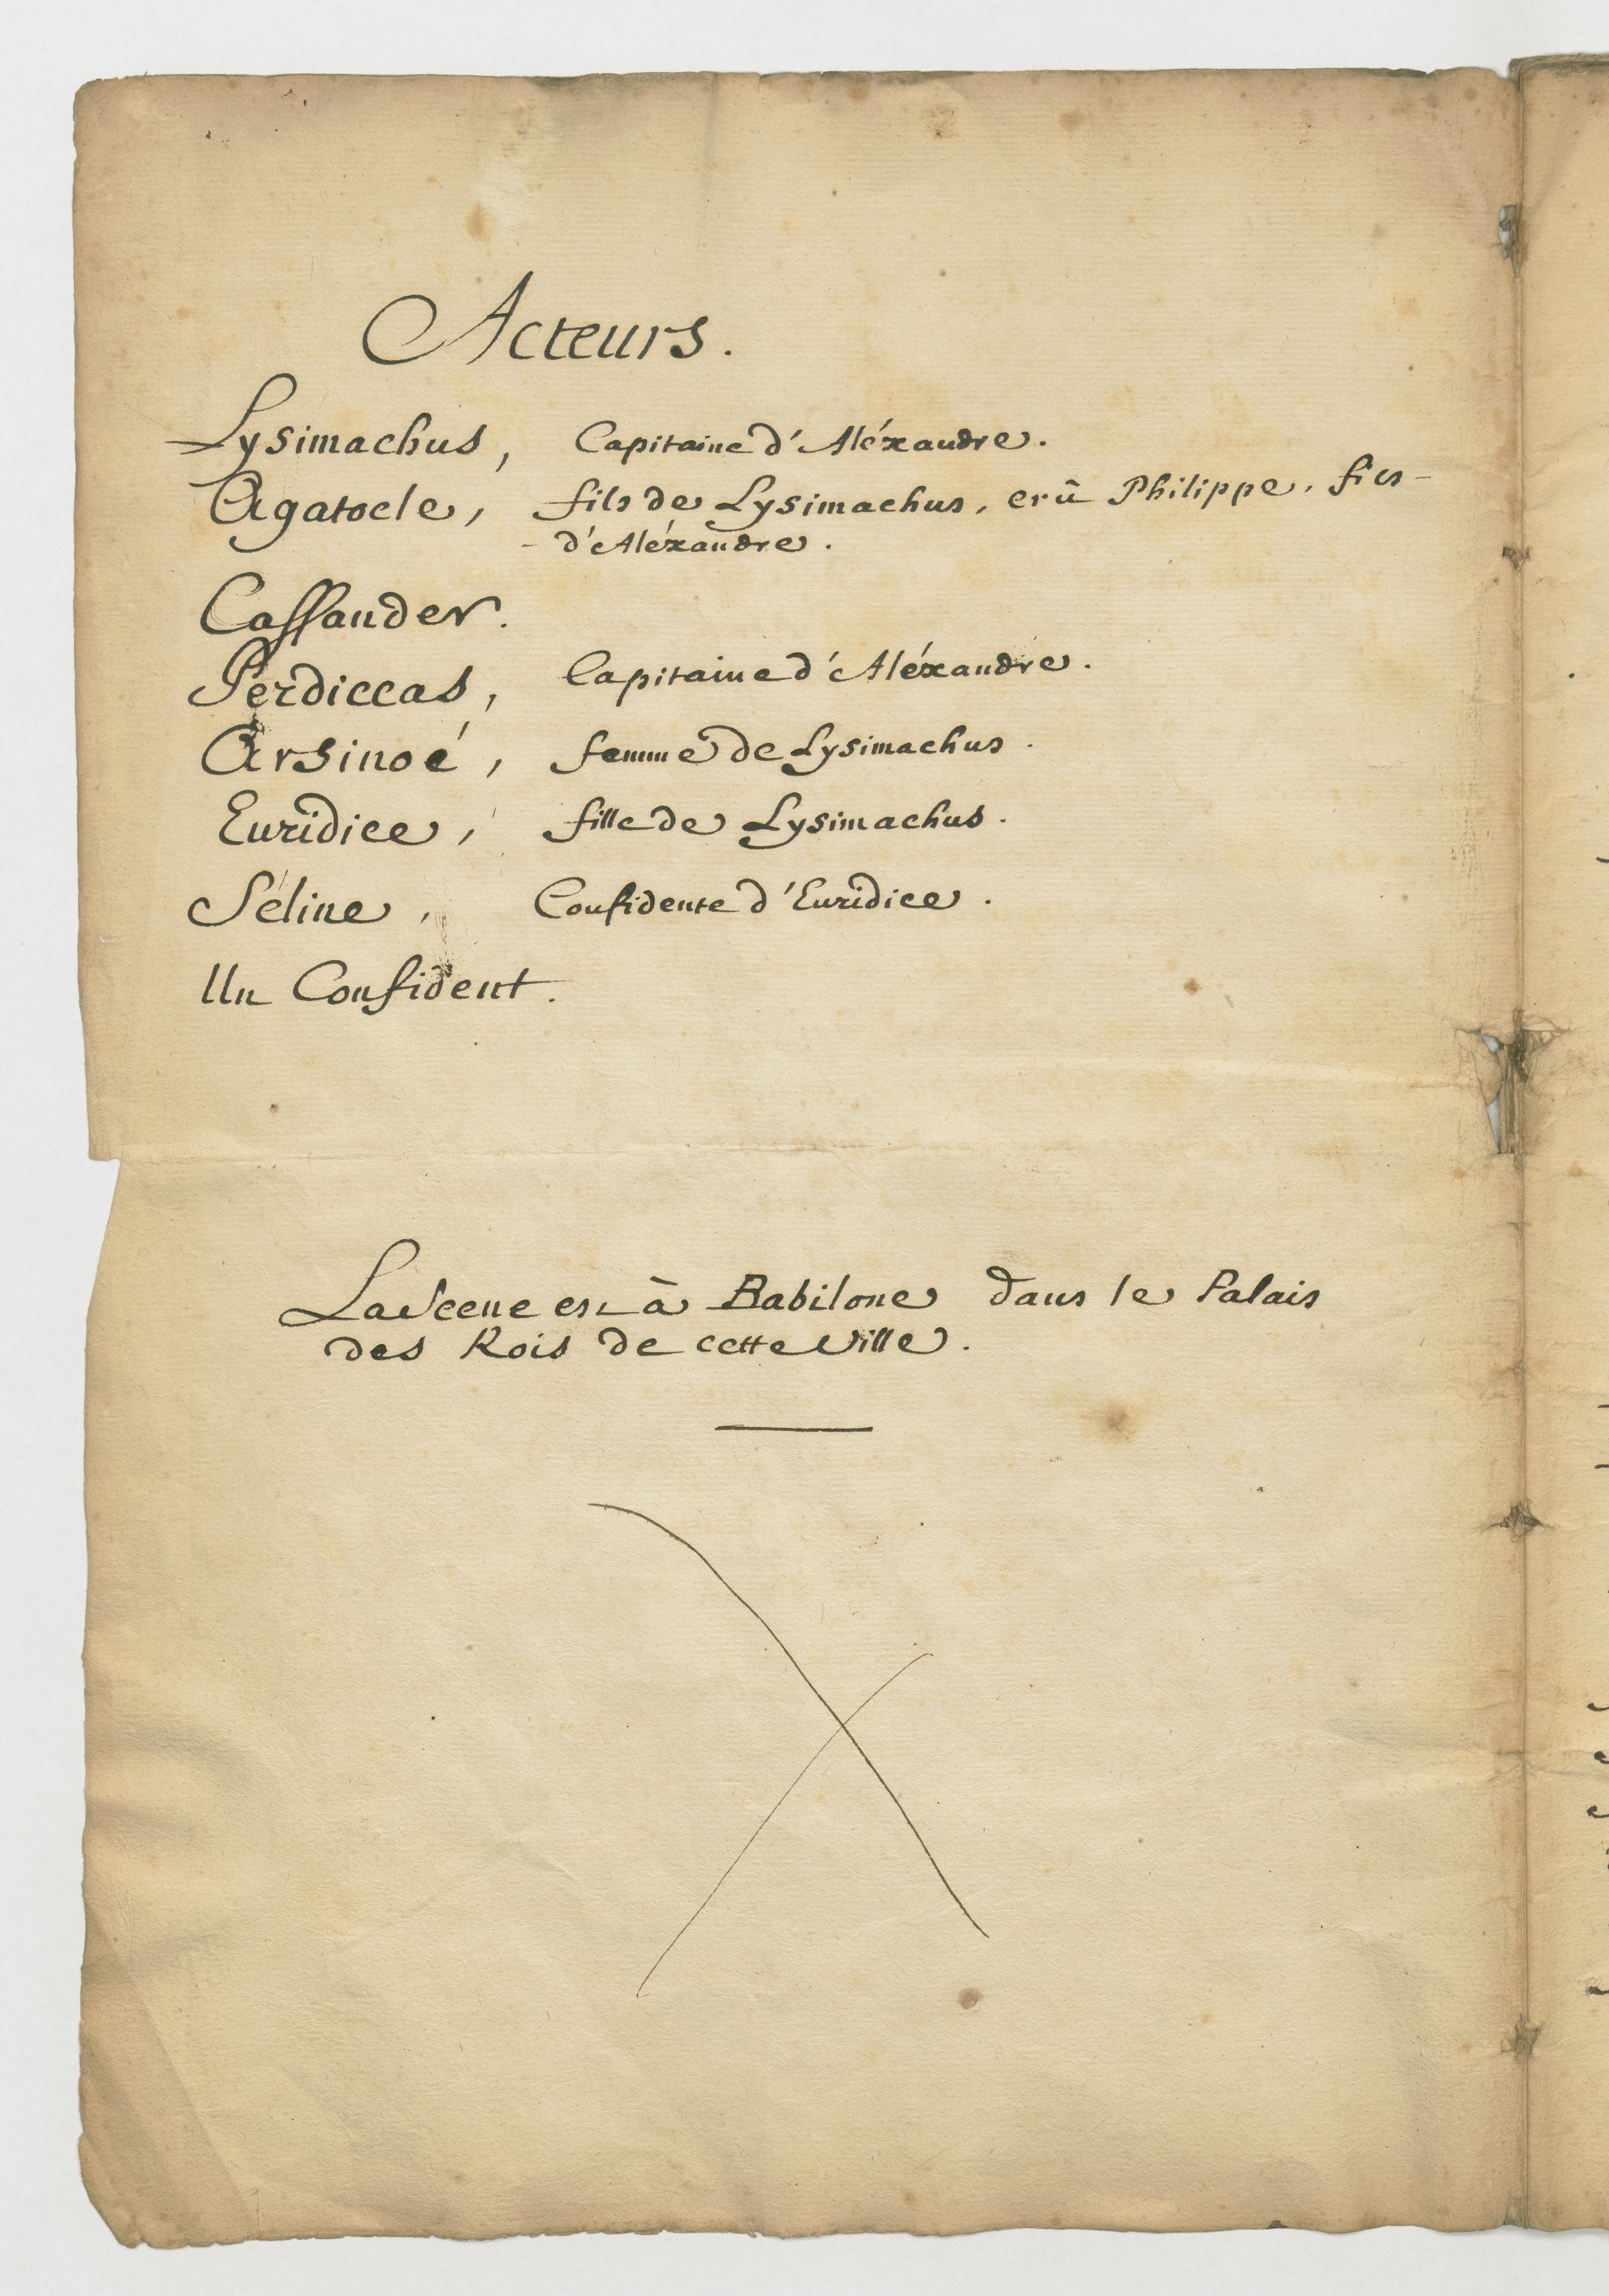 Acteurs.
Lysimachus, Capitaine d'Aléxandre.
Agatocle, fils de Lysimachus, crû Philippe, fils
- d'Aléxandre.
Cassander.
Perdiccas, Capitaine d'Aléxandre.
Arsinoé, femme de Lysimachus.
Euridice, fille de Lysimachus.
Séline, Confidente d'Euridice.
Un Confident.
La Scene est à Babilone dans le Palais
des Rois de cette Ville.